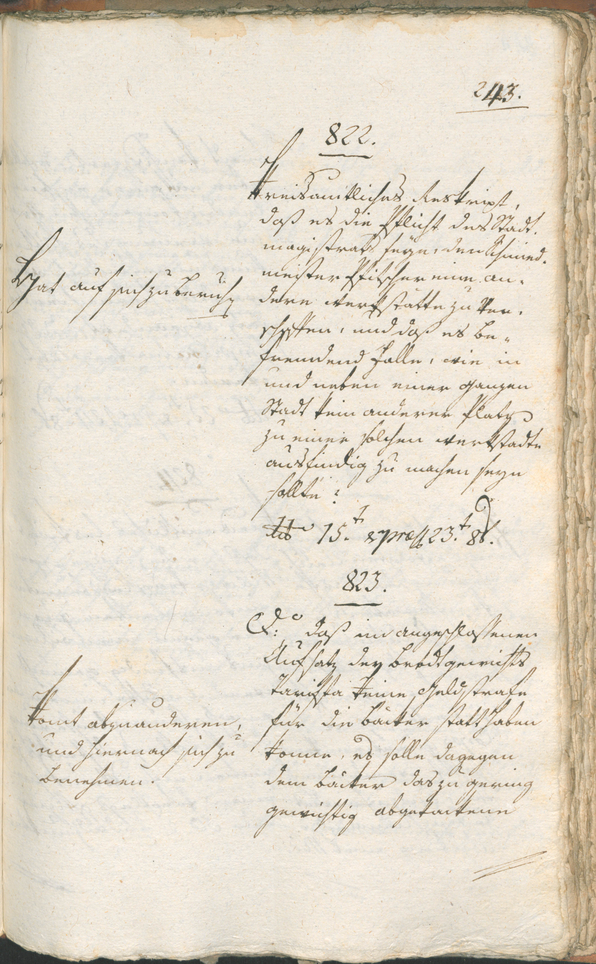 243.
822.
Kreisamtliches Reskript,
daß es die Pflicht des Stadt-
magistrats seye, den Schmied-
meister Pfitscher eine an-
dere Werkstätte zu ver-
schaffen, und daß es be-
fremdend falle, wie in
und neben einer ganzen
Stadt kein anderer Platz
zu einer solchen Werkstädte
ausfindig zu machen seyn
sollte?
dto 15.t & præs 23.t
Hat auf sich zu beruhen
823.
daß im angeschlossenen
Aufsatz der Brodgewichts
Tariffa keine Geldstrafe
für die Bäcker statt haben
könne, es solle dagegen
dem Bäcker das zu gering
gewichtig abgebackene
Komt abzuänderen,
und hiernach sich zu
benehmen.